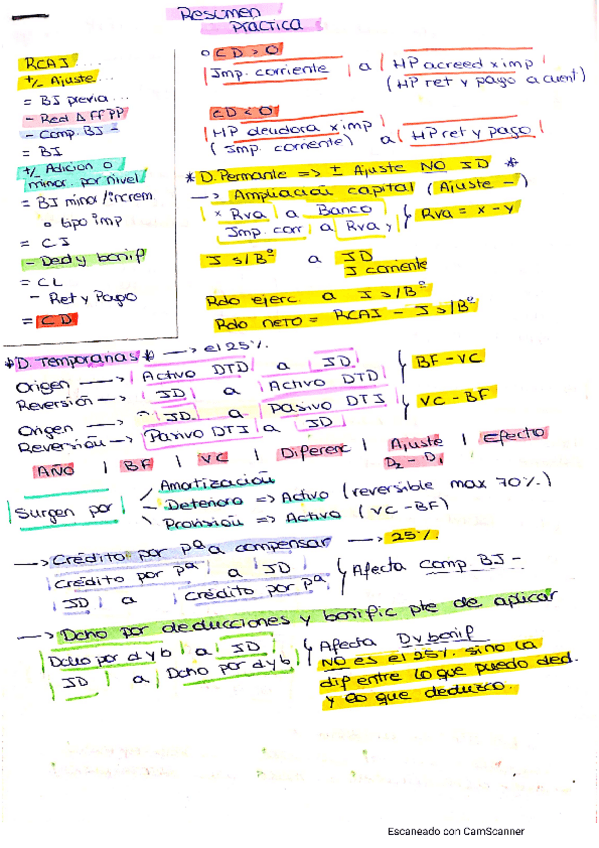 Resumen
Práctica
RCAI ...
+/- Ajuste ...
= BI previa ...
- Red Δ FFPP
- Comp. BI -
= BI
+/- Adición o
minor. por nivel
= BI minor/increm.
o tipo imp
= CI
- Ded y bonif
= CL
- Ret y Pago
= CD
o CD > 0
Imp. corriente a HP acreed x imp
(HP ret y pago a cuent)
CD < 0
HP deudora x imp
(Imp. corriente) a HP ret y pago
* D. Permante => ± Ajuste NO ID *
-> Ampliación capital (Ajuste -)
x Rva a Banco
Imp. corr a Rva y
Rva = x - y
I s/Bº a ID
I corriente
Rdo ejerc. a I s/Bº
Rdo neto = RCAI - I s/Bº
* D. Temporarias * -> el 25%.
Origen -> Activo DTD a ID
Reversión -> ID a Activo DTD
BF - VC
Origen -> ID a Pasivo DTI
Reversión -> Pasivo DTI a ID
VC - BF
AÑO | BF | VC | Diferenc | Ajuste | Efecto
D2 - D1
Surgen por
Amortización
- Deterioro => Activo (reversible max 70%.)
Provisión => Activo (VC - BF)
-> Crédito por Pª a compensar -> 25%.
Crédito por Pª a ID
ID a Crédito por Pª
Afecta comp BI -
-> Dcho por deducciones y bonific pte de aplicar
Dcho por d y b a ID
ID a Dcho por d y b
Afecta D y bonif
NO es el 25%. sino la
dif entre lo que puedo ded.
y lo que deduzco.
Escaneado con CamScanner